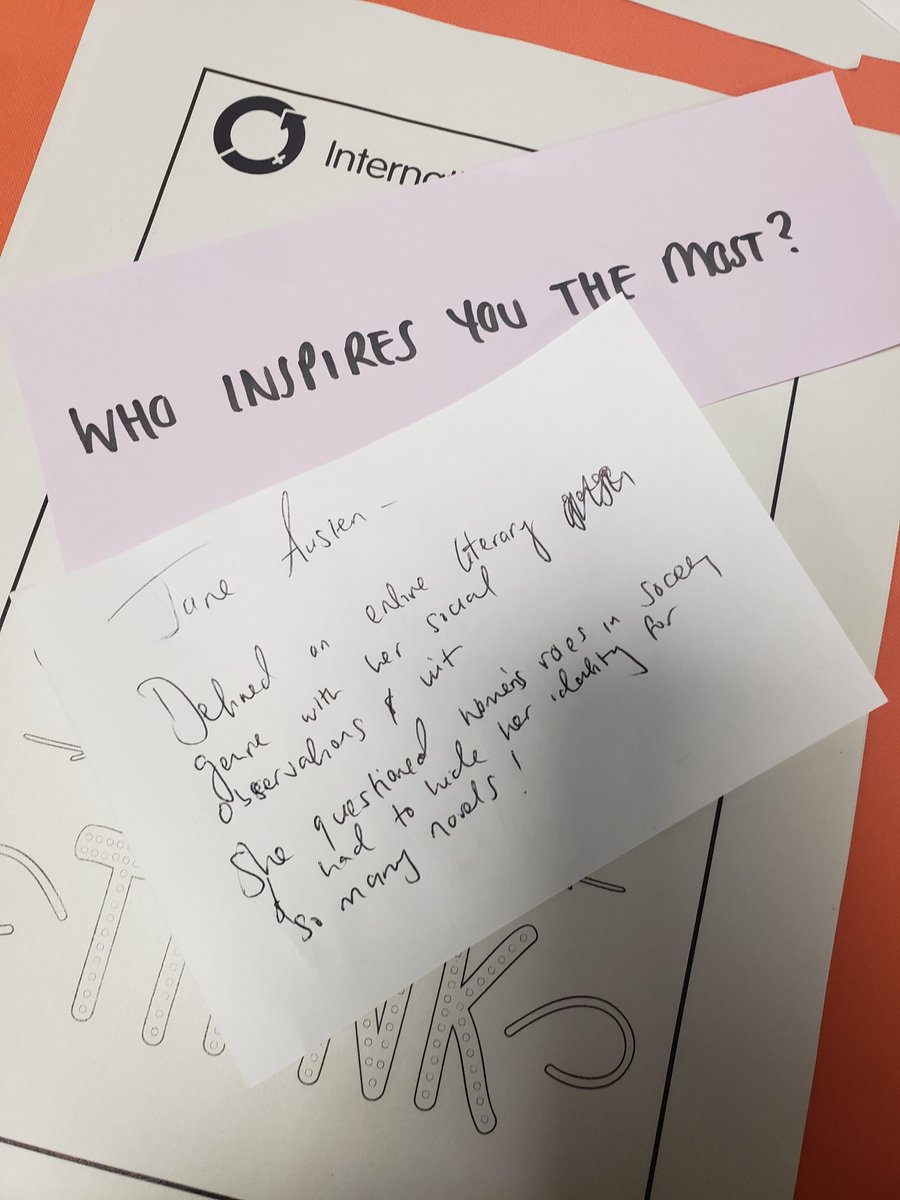 Interna
WHO INSPIRES YOU THE MOST?
Jane Austen -
Defined an entire literary
genre with her social
observations & wit
She questioned women's roles in society
& had to hide her identity for
so many novels!